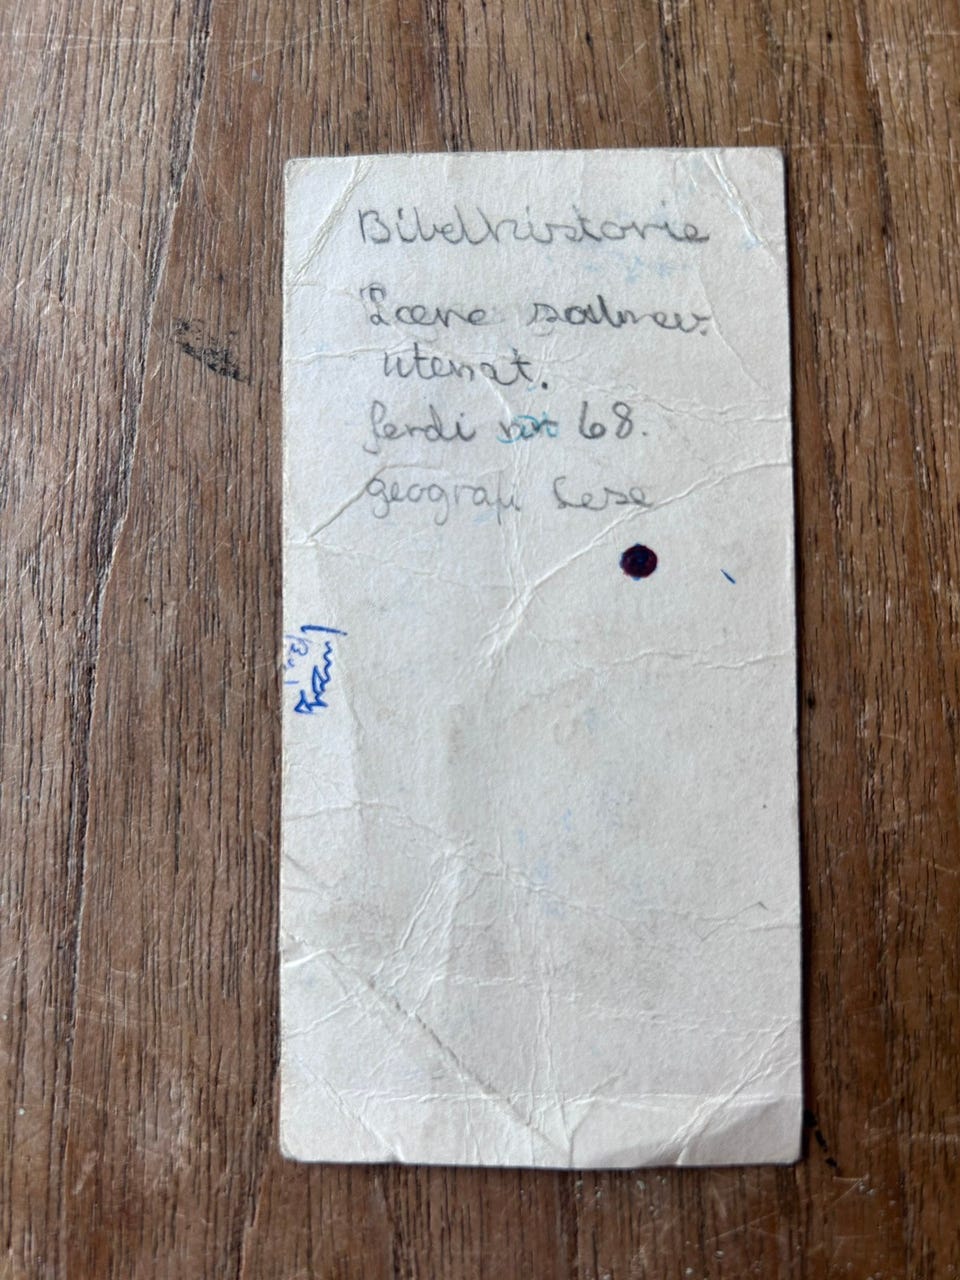 Bibelhistorie
Lære salmev.
utenat.
ferdi nr 68.
geografi Lese